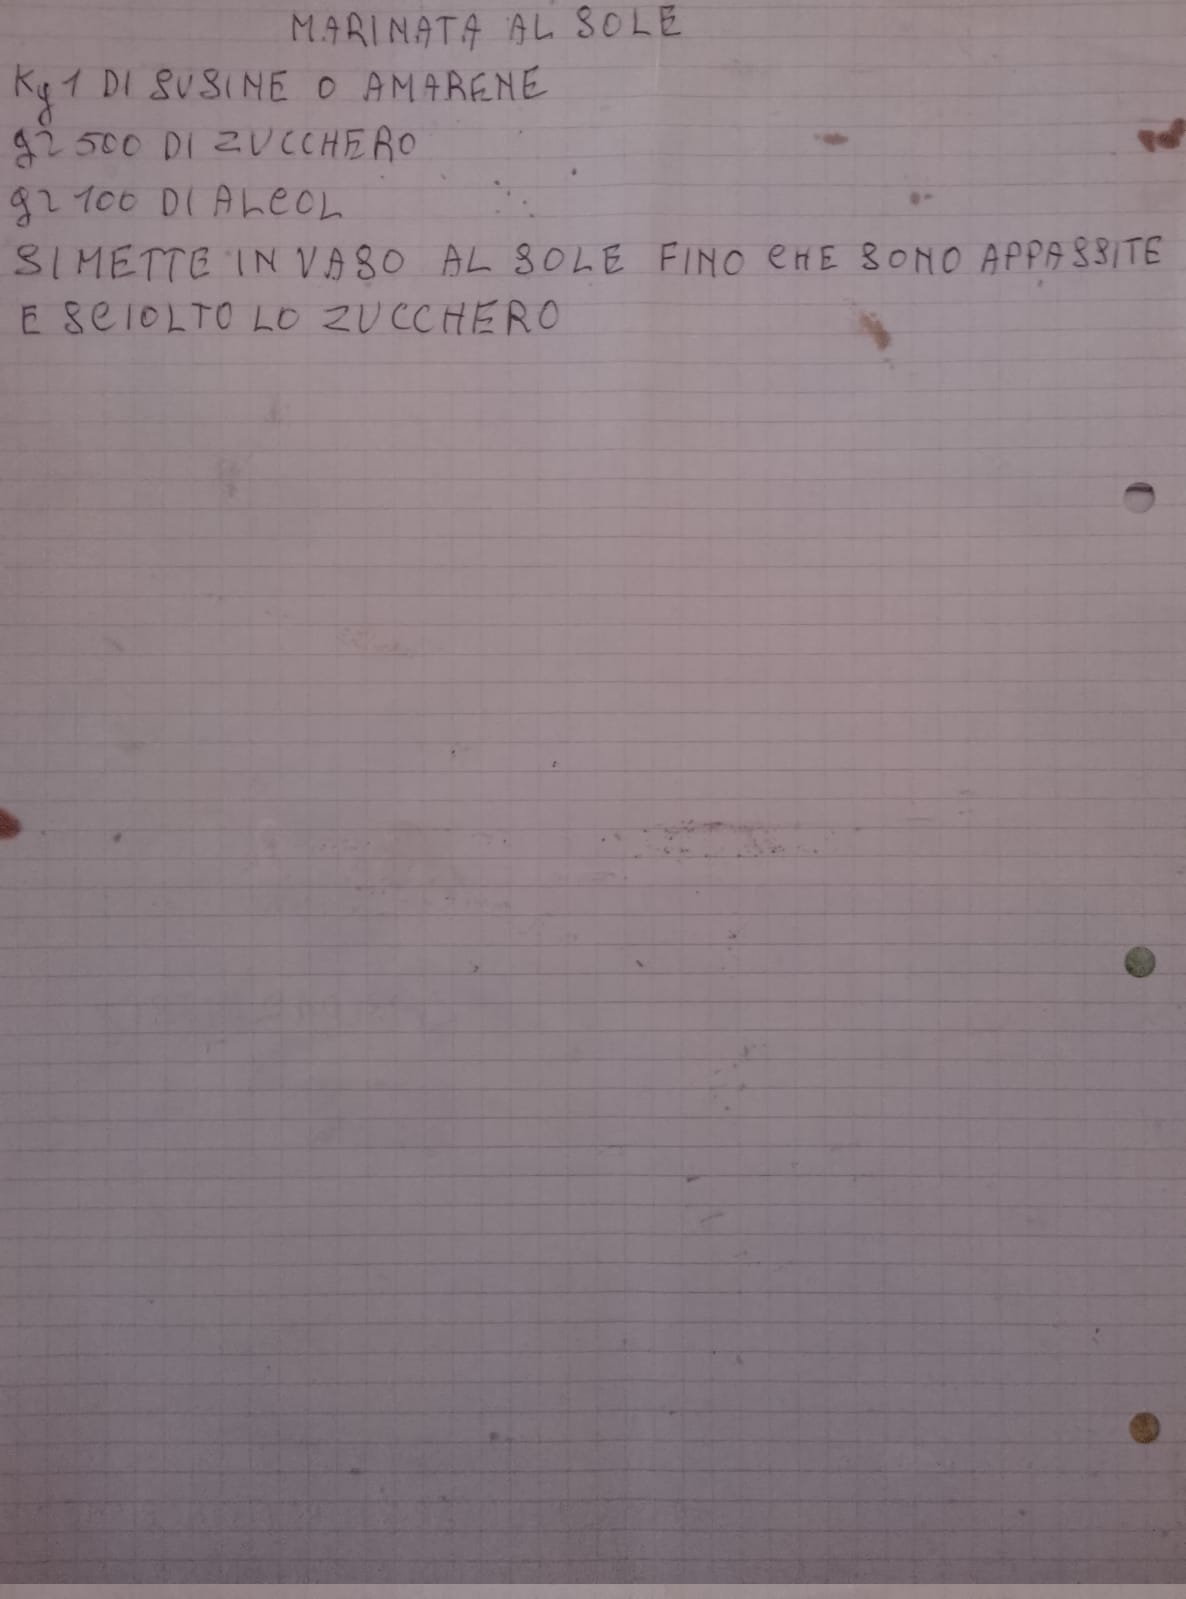 MARINATA AL SOLE
Kg 1 DI SUSINE O AMARENE
gr 500 DI ZUCCHERO
gr 100 DI ALCOL
SI METTE IN VASO AL SOLE FINO CHE SONO APPASSITE
E SCIOLTO LO ZUCCHERO